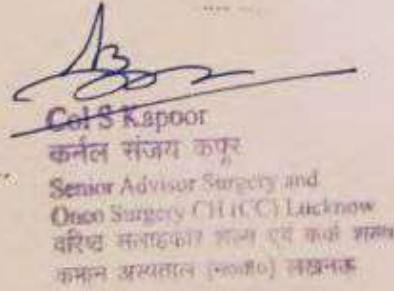 Col S Kapoor
कर्नल संजय कपूर
Senior Advisor Surgery and
Onco Surgery CH (CC) Lucknow
वरिष्ठ सलाहकार शल्य एवं कर्क शल्य
कमान अस्पताल (म०क०) लखनऊ